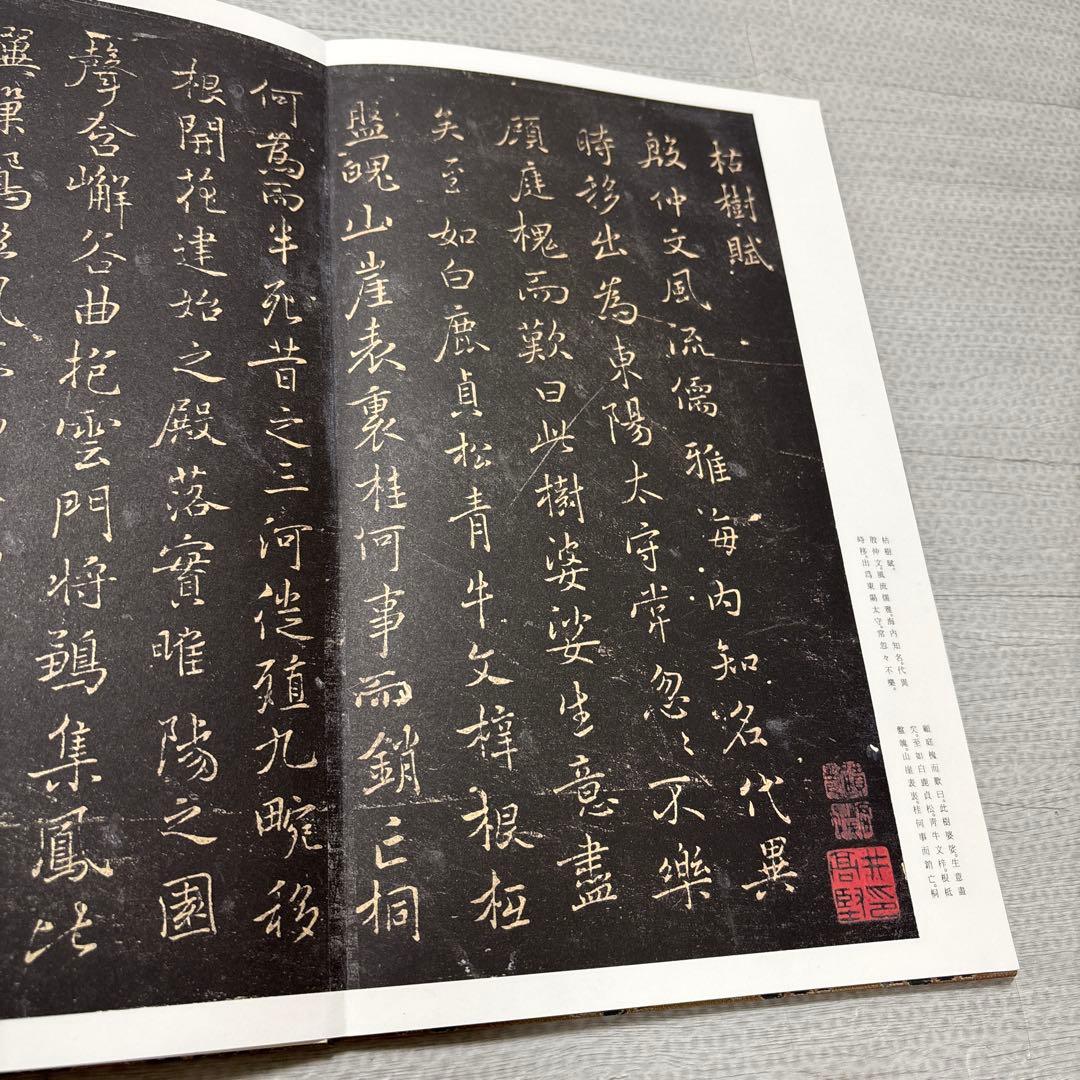 枯樹賦
殷仲文風流儒雅海内知名代異
時移出為東陽太守常忽〻不樂
顧庭槐而歎曰此樹婆娑生意盡
矣至如白鹿貞松青牛文梓根柢
盤魄山崖表裏桂何事而銷亡桐
何為而半死昔之三河徙殖九畹移
根開花建始之殿落實睢陽之園
聲含嶰谷曲抱雲門将鶵集鳳比
翼巢鴛
枯樹賦。
殷仲文。風流儒雅。海内知名。代異
時移。出爲東陽太守。常忽々不樂。
顧庭槐而歎曰。此樹婆娑。生意盡
矣。至如白鹿貞松。青牛文梓。根柢
盤魄。山崖表裏。桂何事而銷亡。桐